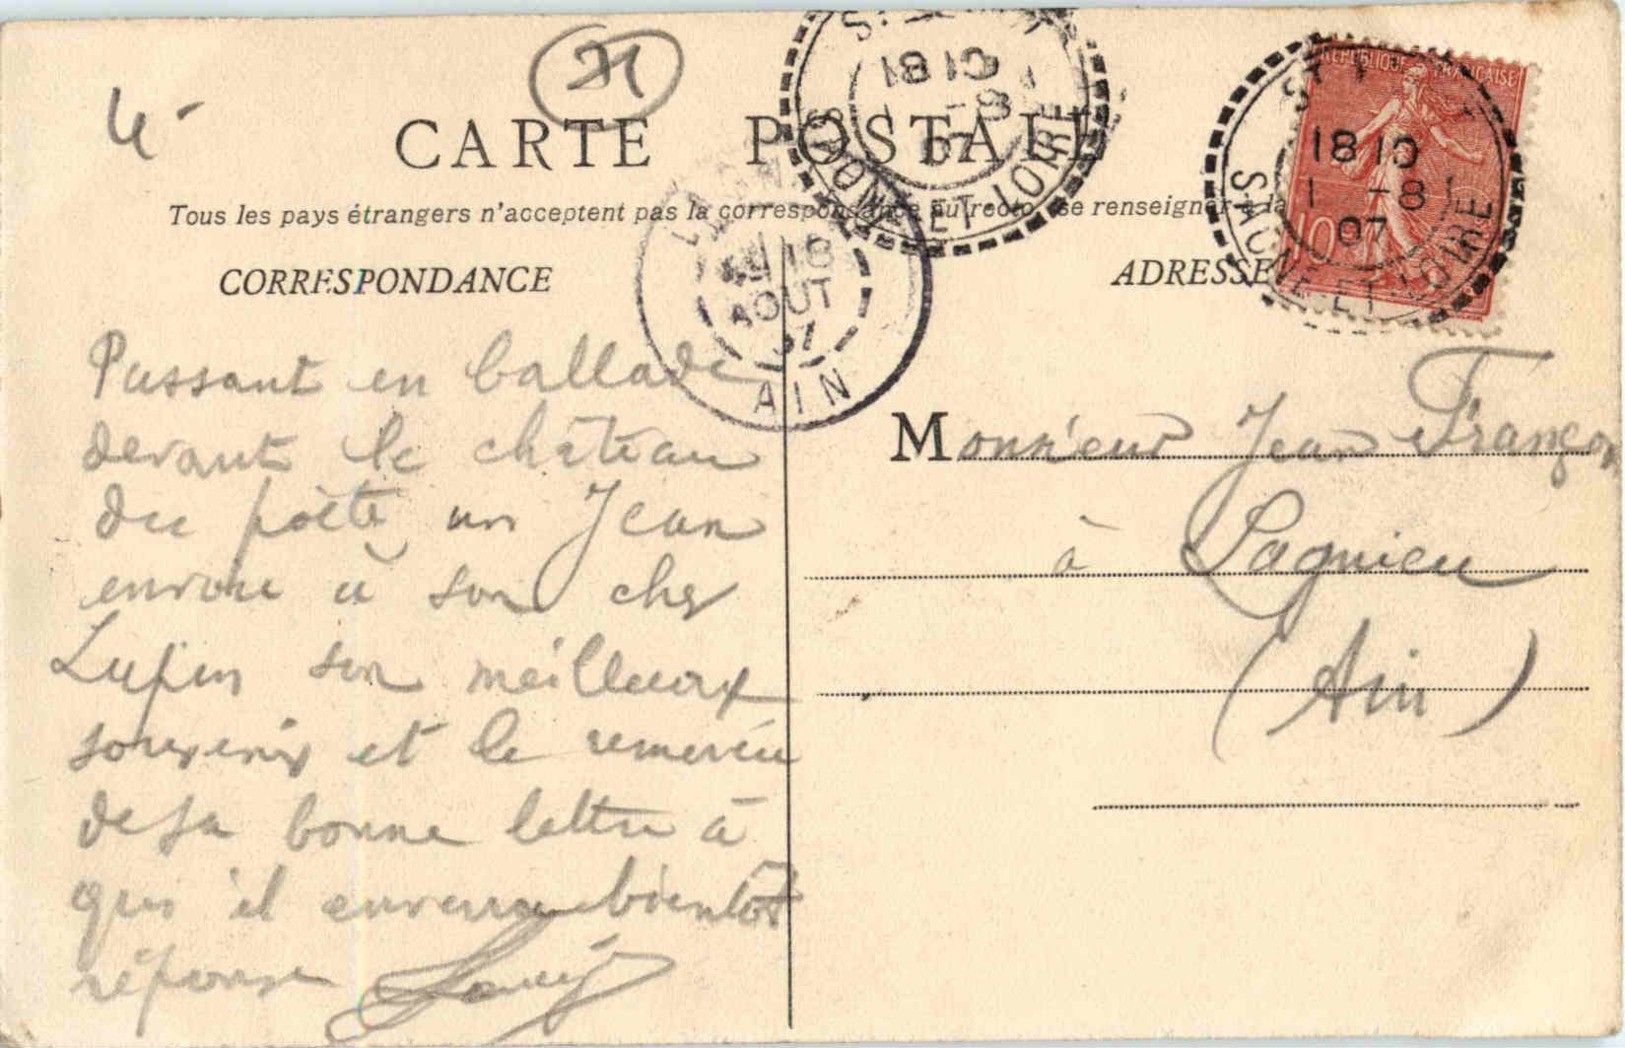 4
71
CARTE POSTALE
Tous les pays étrangers n'acceptent pas la correspondance au recto, se renseigner à la
CORRESPONDANCE
ADRESSE
18 10
1 -8
07
SAONE-ET-LOIRE
RÉPUBLIQUE FRANÇAISE
10
18 10
1 -8
07
SAONE-ET-LOIRE
18
AOUT
07
AIN
Passant en ballade
devant le château
du poète un Jean
envoie à son cher
Lupin son meilleur
souvenir et le remercie
de sa bonne lettre à
qui il enverra bientôt
réponse
Monsieur Jean Françon
à Lagnieu
(Ain)